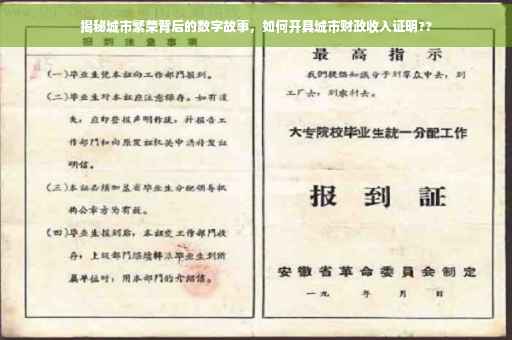 揭秘城市繁荣背后的数字故事，如何开具城市财政收入证明??
报到注意事项
(一)毕业生凭本证向工作部门报到。
(二)毕业生对本证应注意保存。如有遗
失，应即登报声明作废，并报告工
作部门和向原发证机关申请补发证
明信。
(三)本证必须加盖省毕业生分配领导机
构公章方为有效。
(四)毕业生报到后，本证交工作部门收
存；上级部门继续转派毕业生到所
属单位时，用本部门的介绍信。
最高指示
我们提倡知识分子到群众中去，到
工厂去，到农村去。
大专院校毕业生统一分配工作
报到证
安徽省革命委员会制定
一九 年 月 日